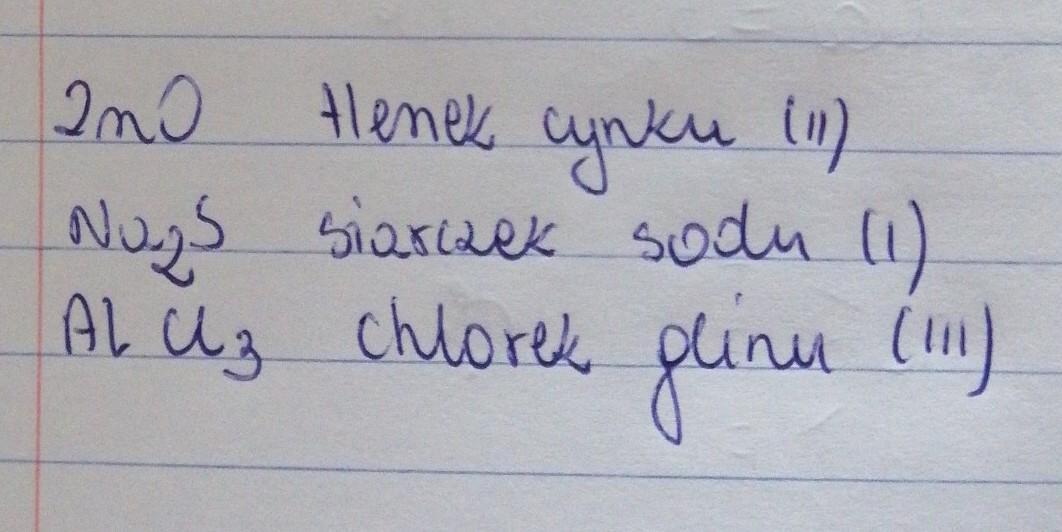 ZnO tlenek cynku (II)
Na₂S siarczek sodu (I)
AlCl₃ chlorek glinu (III)